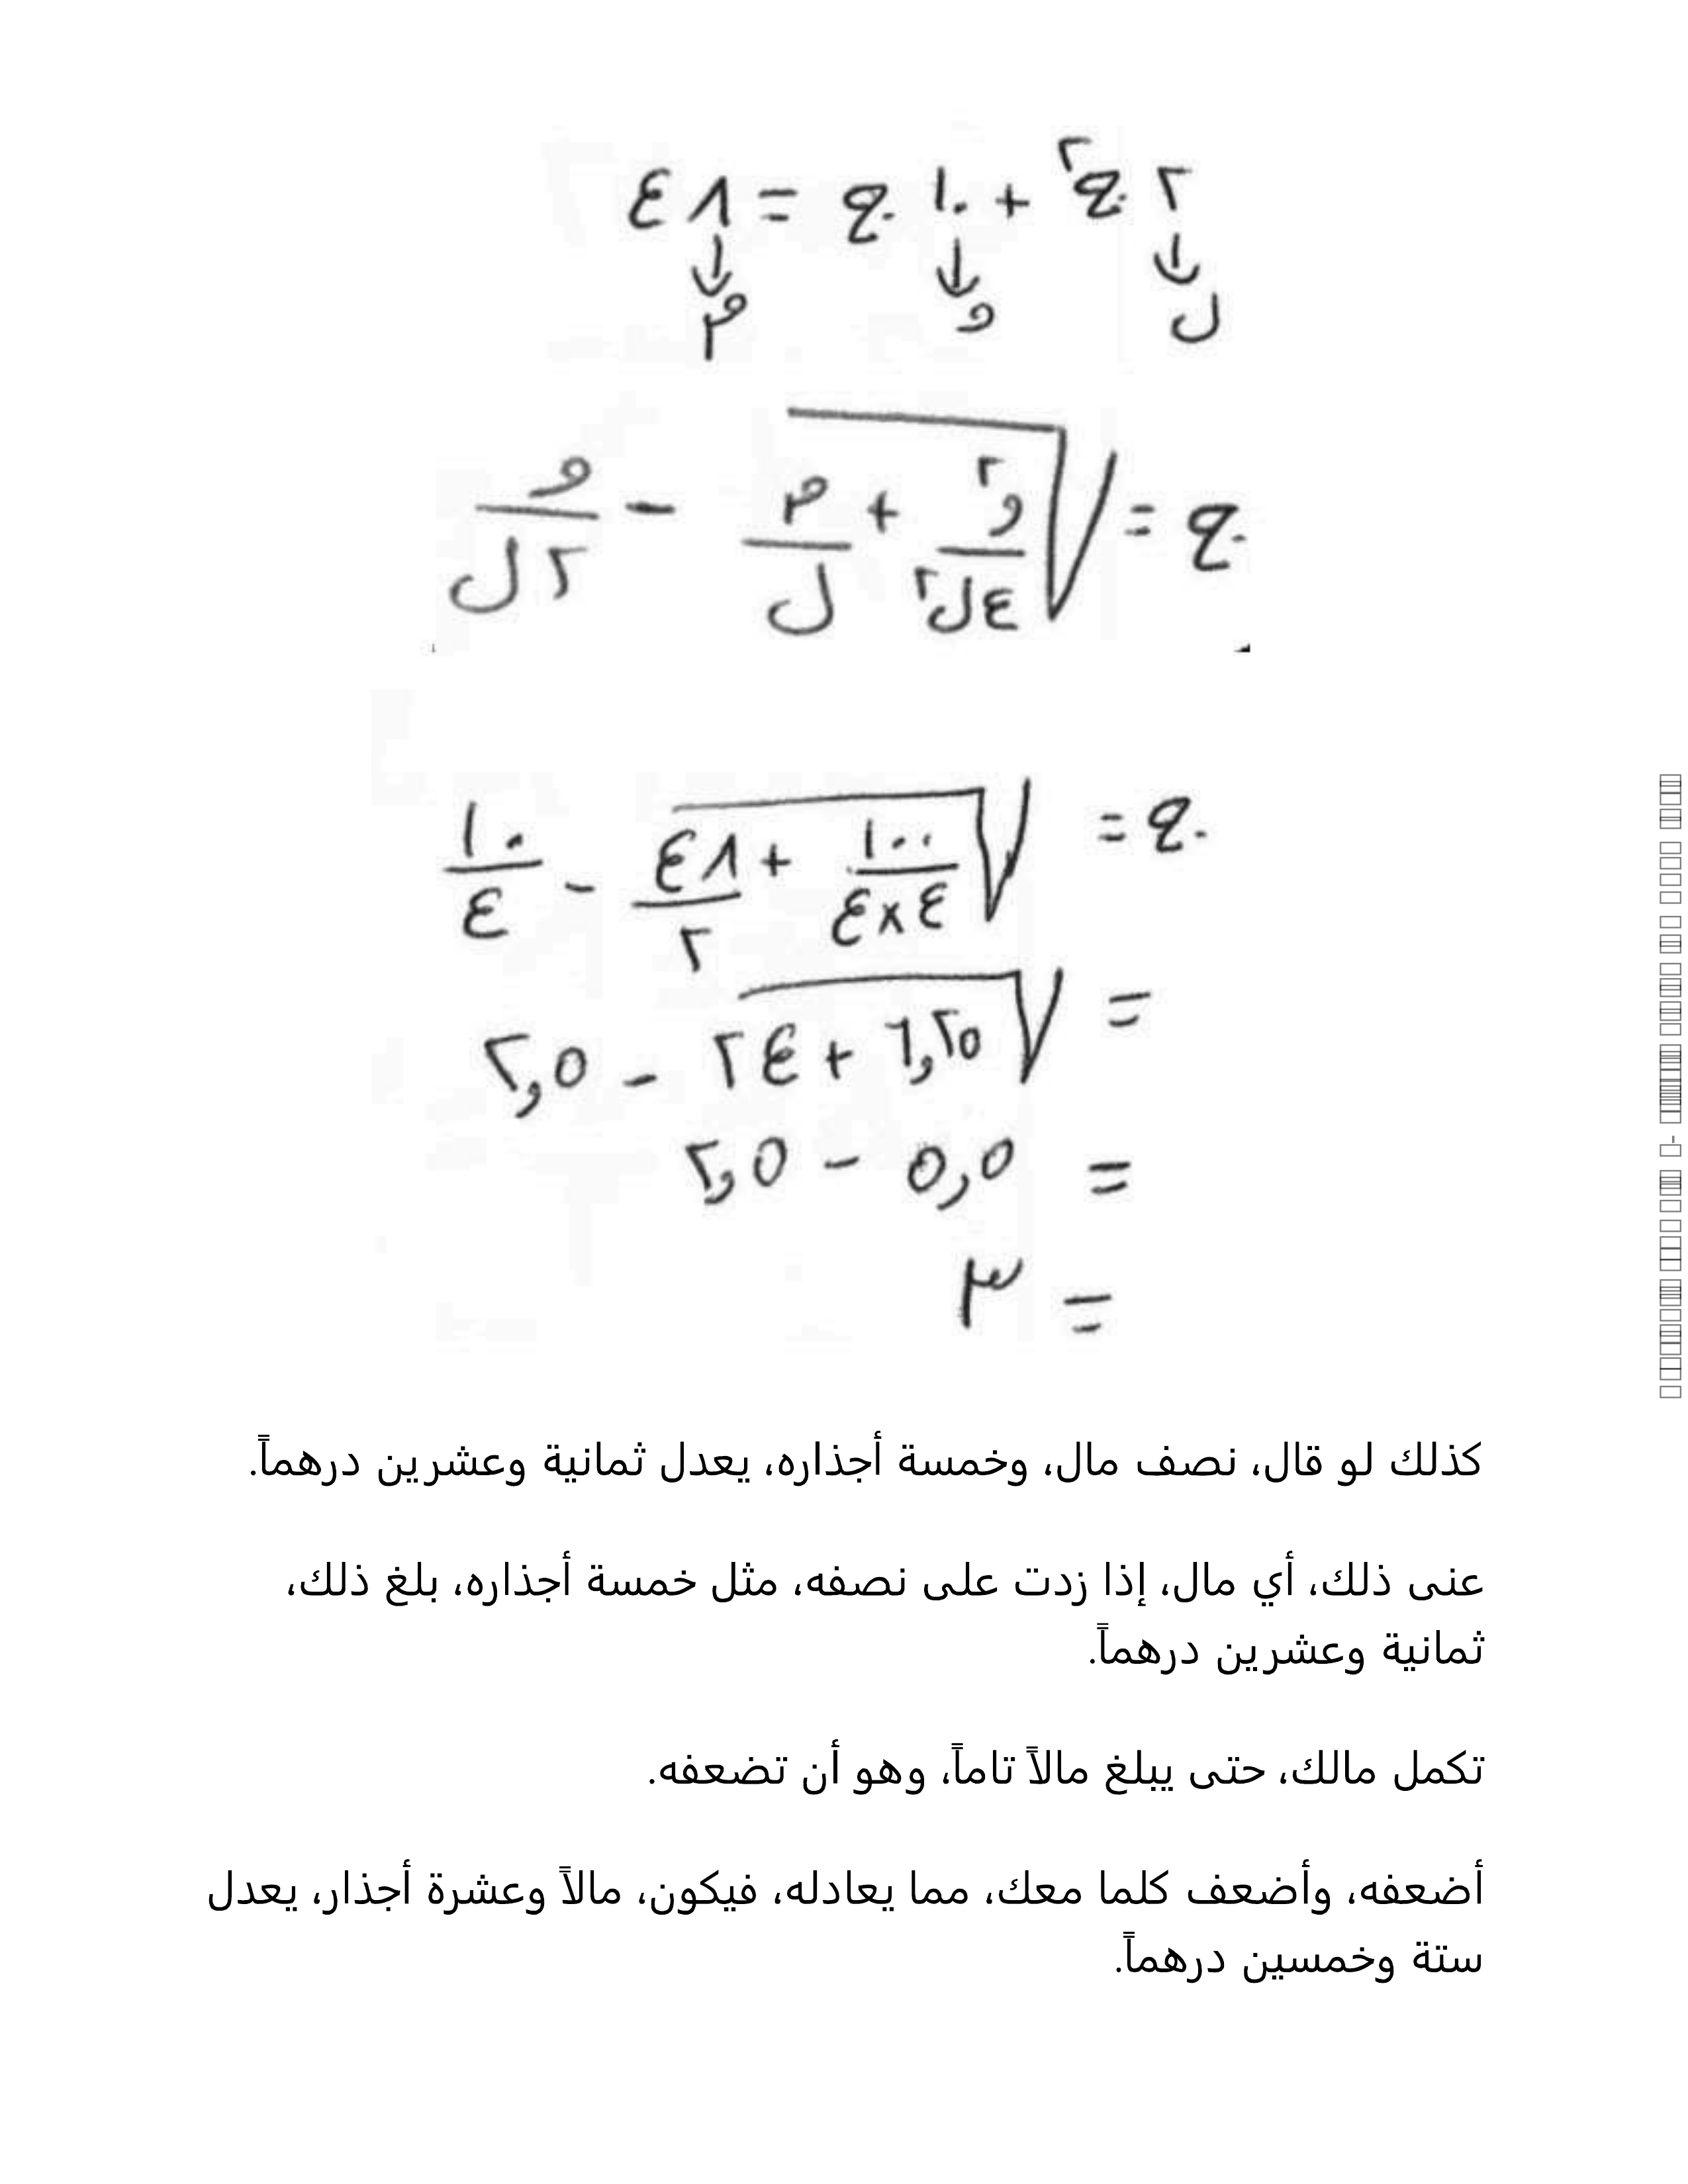 ٢ ج² + ١٠ ج = ٤٨
ل و م
ج = √(و²/٤ل² + م/ل) − و/٢ل
ج = √(١٠٠/٤×٤ + ٤٨/٢) − ١٠/٤
= √(٦,٢٥ + ٢٤) − ٢,٥
= ٥,٥ − ٢,٥
= ٣
كذلك لو قال، نصف مال، وخمسة أجذاره، يعدل ثمانية وعشرين درهماً.
عنى ذلك، أي مال، إذا زدت على نصفه، مثل خمسة أجذاره، بلغ ذلك،
ثمانية وعشرين درهماً.
تكمل مالك، حتى يبلغ مالاً تاماً، وهو أن تضعفه.
أضعفه، وأضعف كلما معك، مما يعادله، فيكون، مالاً وعشرة أجذار، يعدل
ستة وخمسين درهماً.